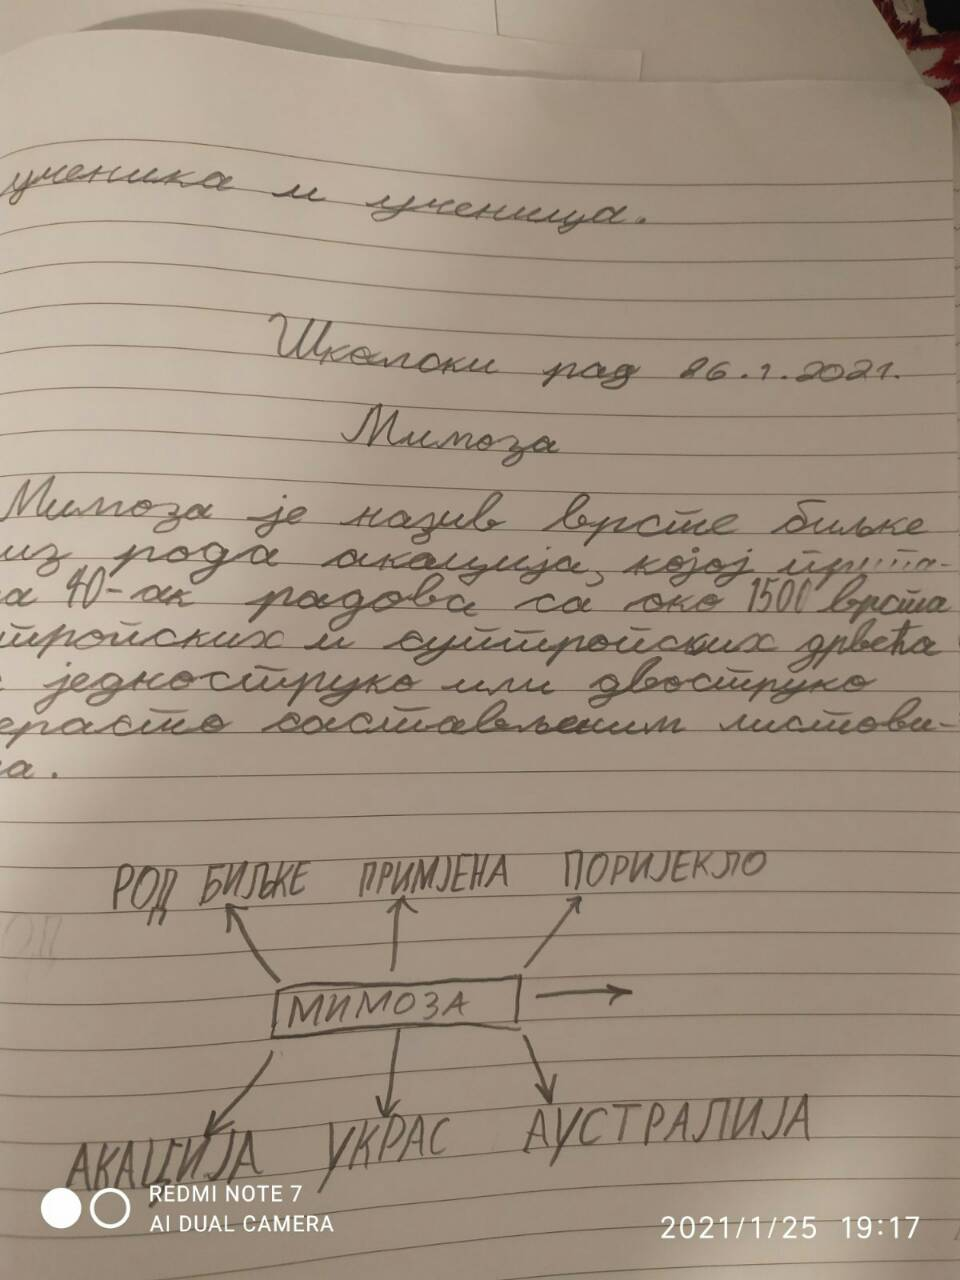 ученика и ученица.
Школски рад 26.1.2021.
Мимоза
Мимоза је назив врсте биљке
из рода акација, којој припа-
а 40-ак радова са око 1500 врста
тропских и суптропских дрвећа
једноструко или двоструко
ерасто састављеним листови-
а.
РОД БИЉКЕ ПРИМЈЕНА ПОРИЈЕКЛО
МИМОЗА
АКАЦИЈА УКРАС АУСТРАЛИЈА
REDMI NOTE 7
AI DUAL CAMERA
2021/1/25 19:17